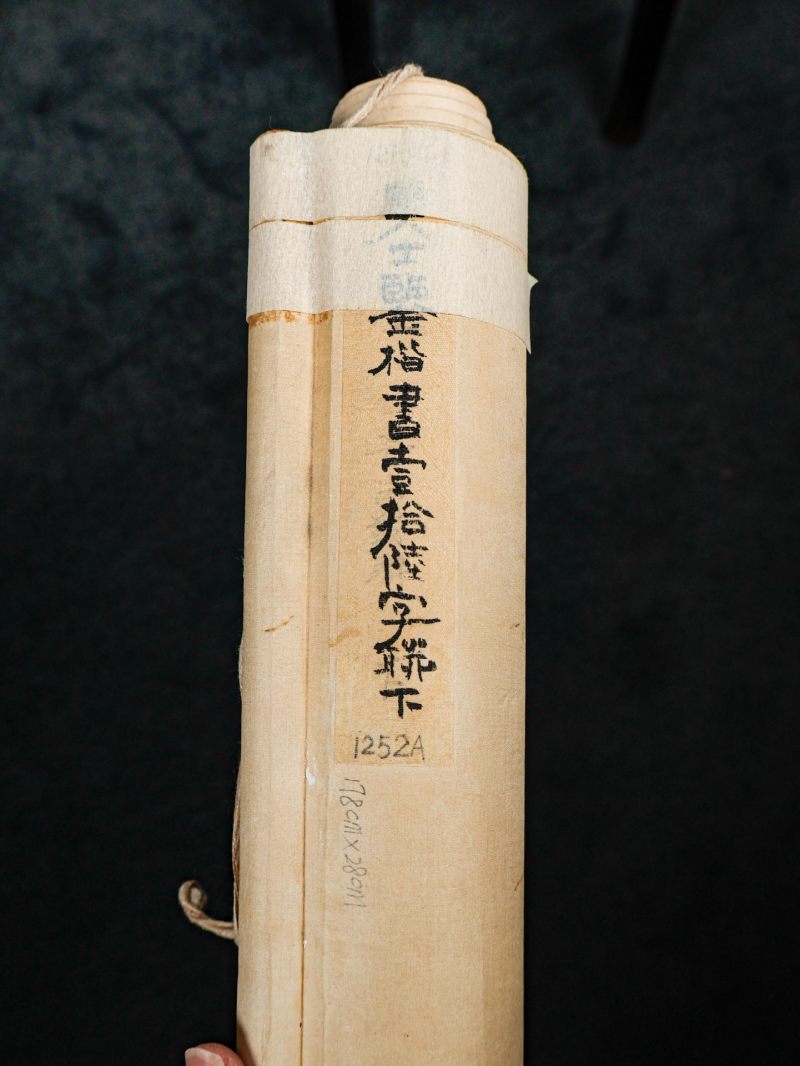 吳士鑒楷書壹拾陸字聯下
1252A
178cm x 28cm